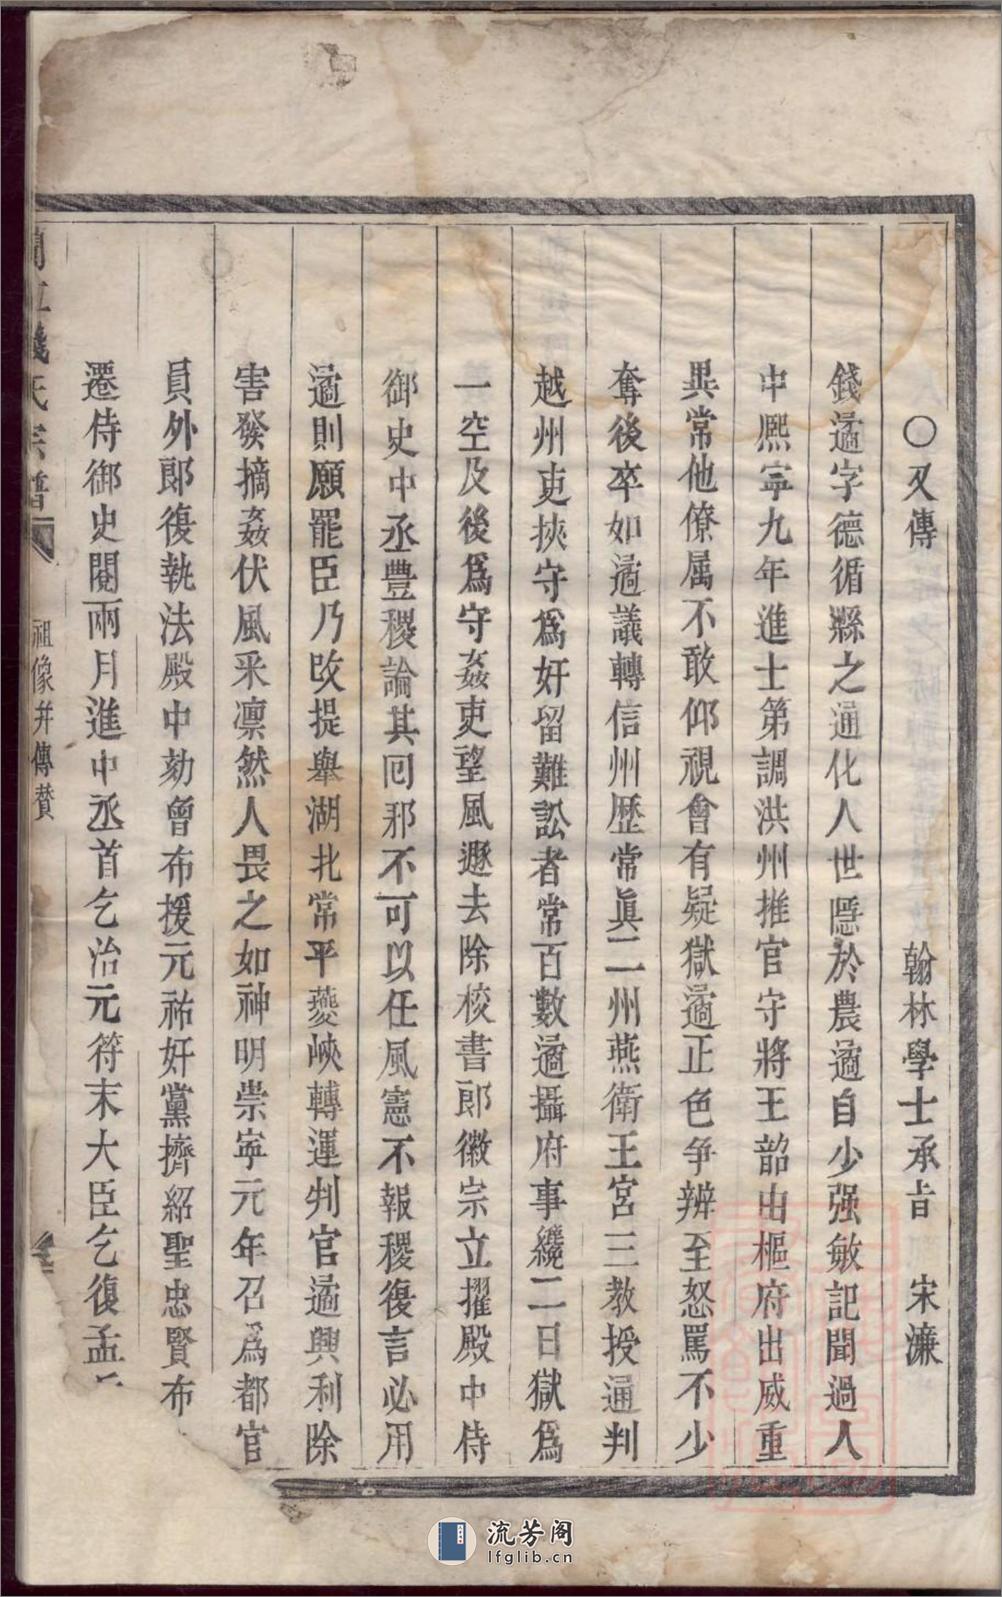 ○又傳 翰林學士承旨 宋濂
錢遹字德循縣之通化人世隱於農遹自少强敏記聞過人
中熙寧九年進士第調洪州推官守將王韶由樞府出威重
異常他僚属不敢仰視會有疑獄遹正色争辨至怒罵不少
奪後卒如遹議轉信州歴常眞二州燕衛王宮三教授通判
越州吏挾守爲奸留難訟者常百數遹攝府事纔二日獄爲
一空及後爲守姦吏望風遯去除校書郎徽宗立擢殿中侍
御史中丞豊稷論其回邪不可以任風憲不報稷復言必用
遹則願罷臣乃改提舉湖北常平夔峽轉運判官遹興利除
害發摘姦伏風采凛然人畏之如神明崇寧元年召爲都官
員外郎復執法殿中劾曾布援元祐奸黨擠紹聖忠賢布
遷侍御史閱兩月進中丞首乞治元符末大臣乞復孟
江錢氏宗譜 祖像并傳贊
流芳阁
lfglib.cn